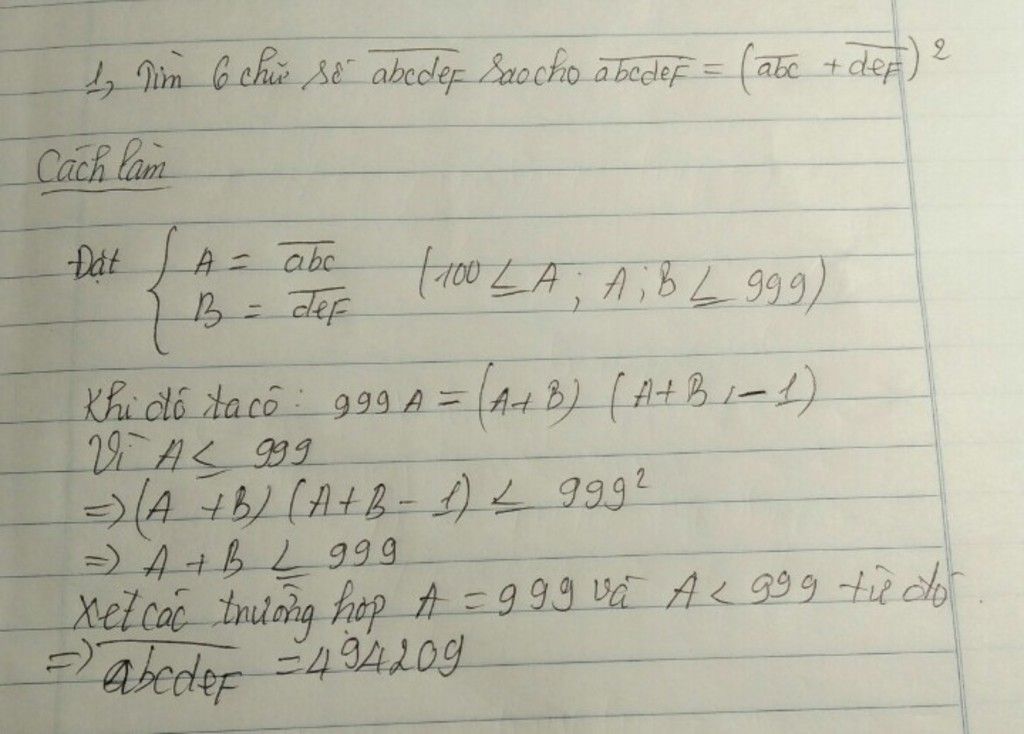 1, Tìm 6 chữ số abcdeF sao cho abcdeF = (abc + deF)²
Cách làm
Đặt { A = abc (100 ≤ A ; A ; B ≤ 999)
B = deF
Khi đó ta có : 999 A = (A+B) (A+B - 1)
Vì A ≤ 999
=> (A +B) (A+B - 1) ≤ 999²
=> A + B ≤ 999
Xét các trường hợp A = 999 và A < 999 từ đó
=> abcdeF = 494209